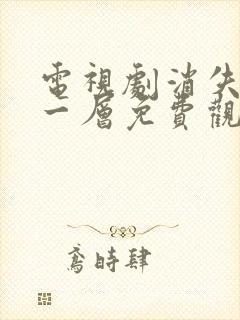 電視劇消失
一層免費觀
鳶時肆